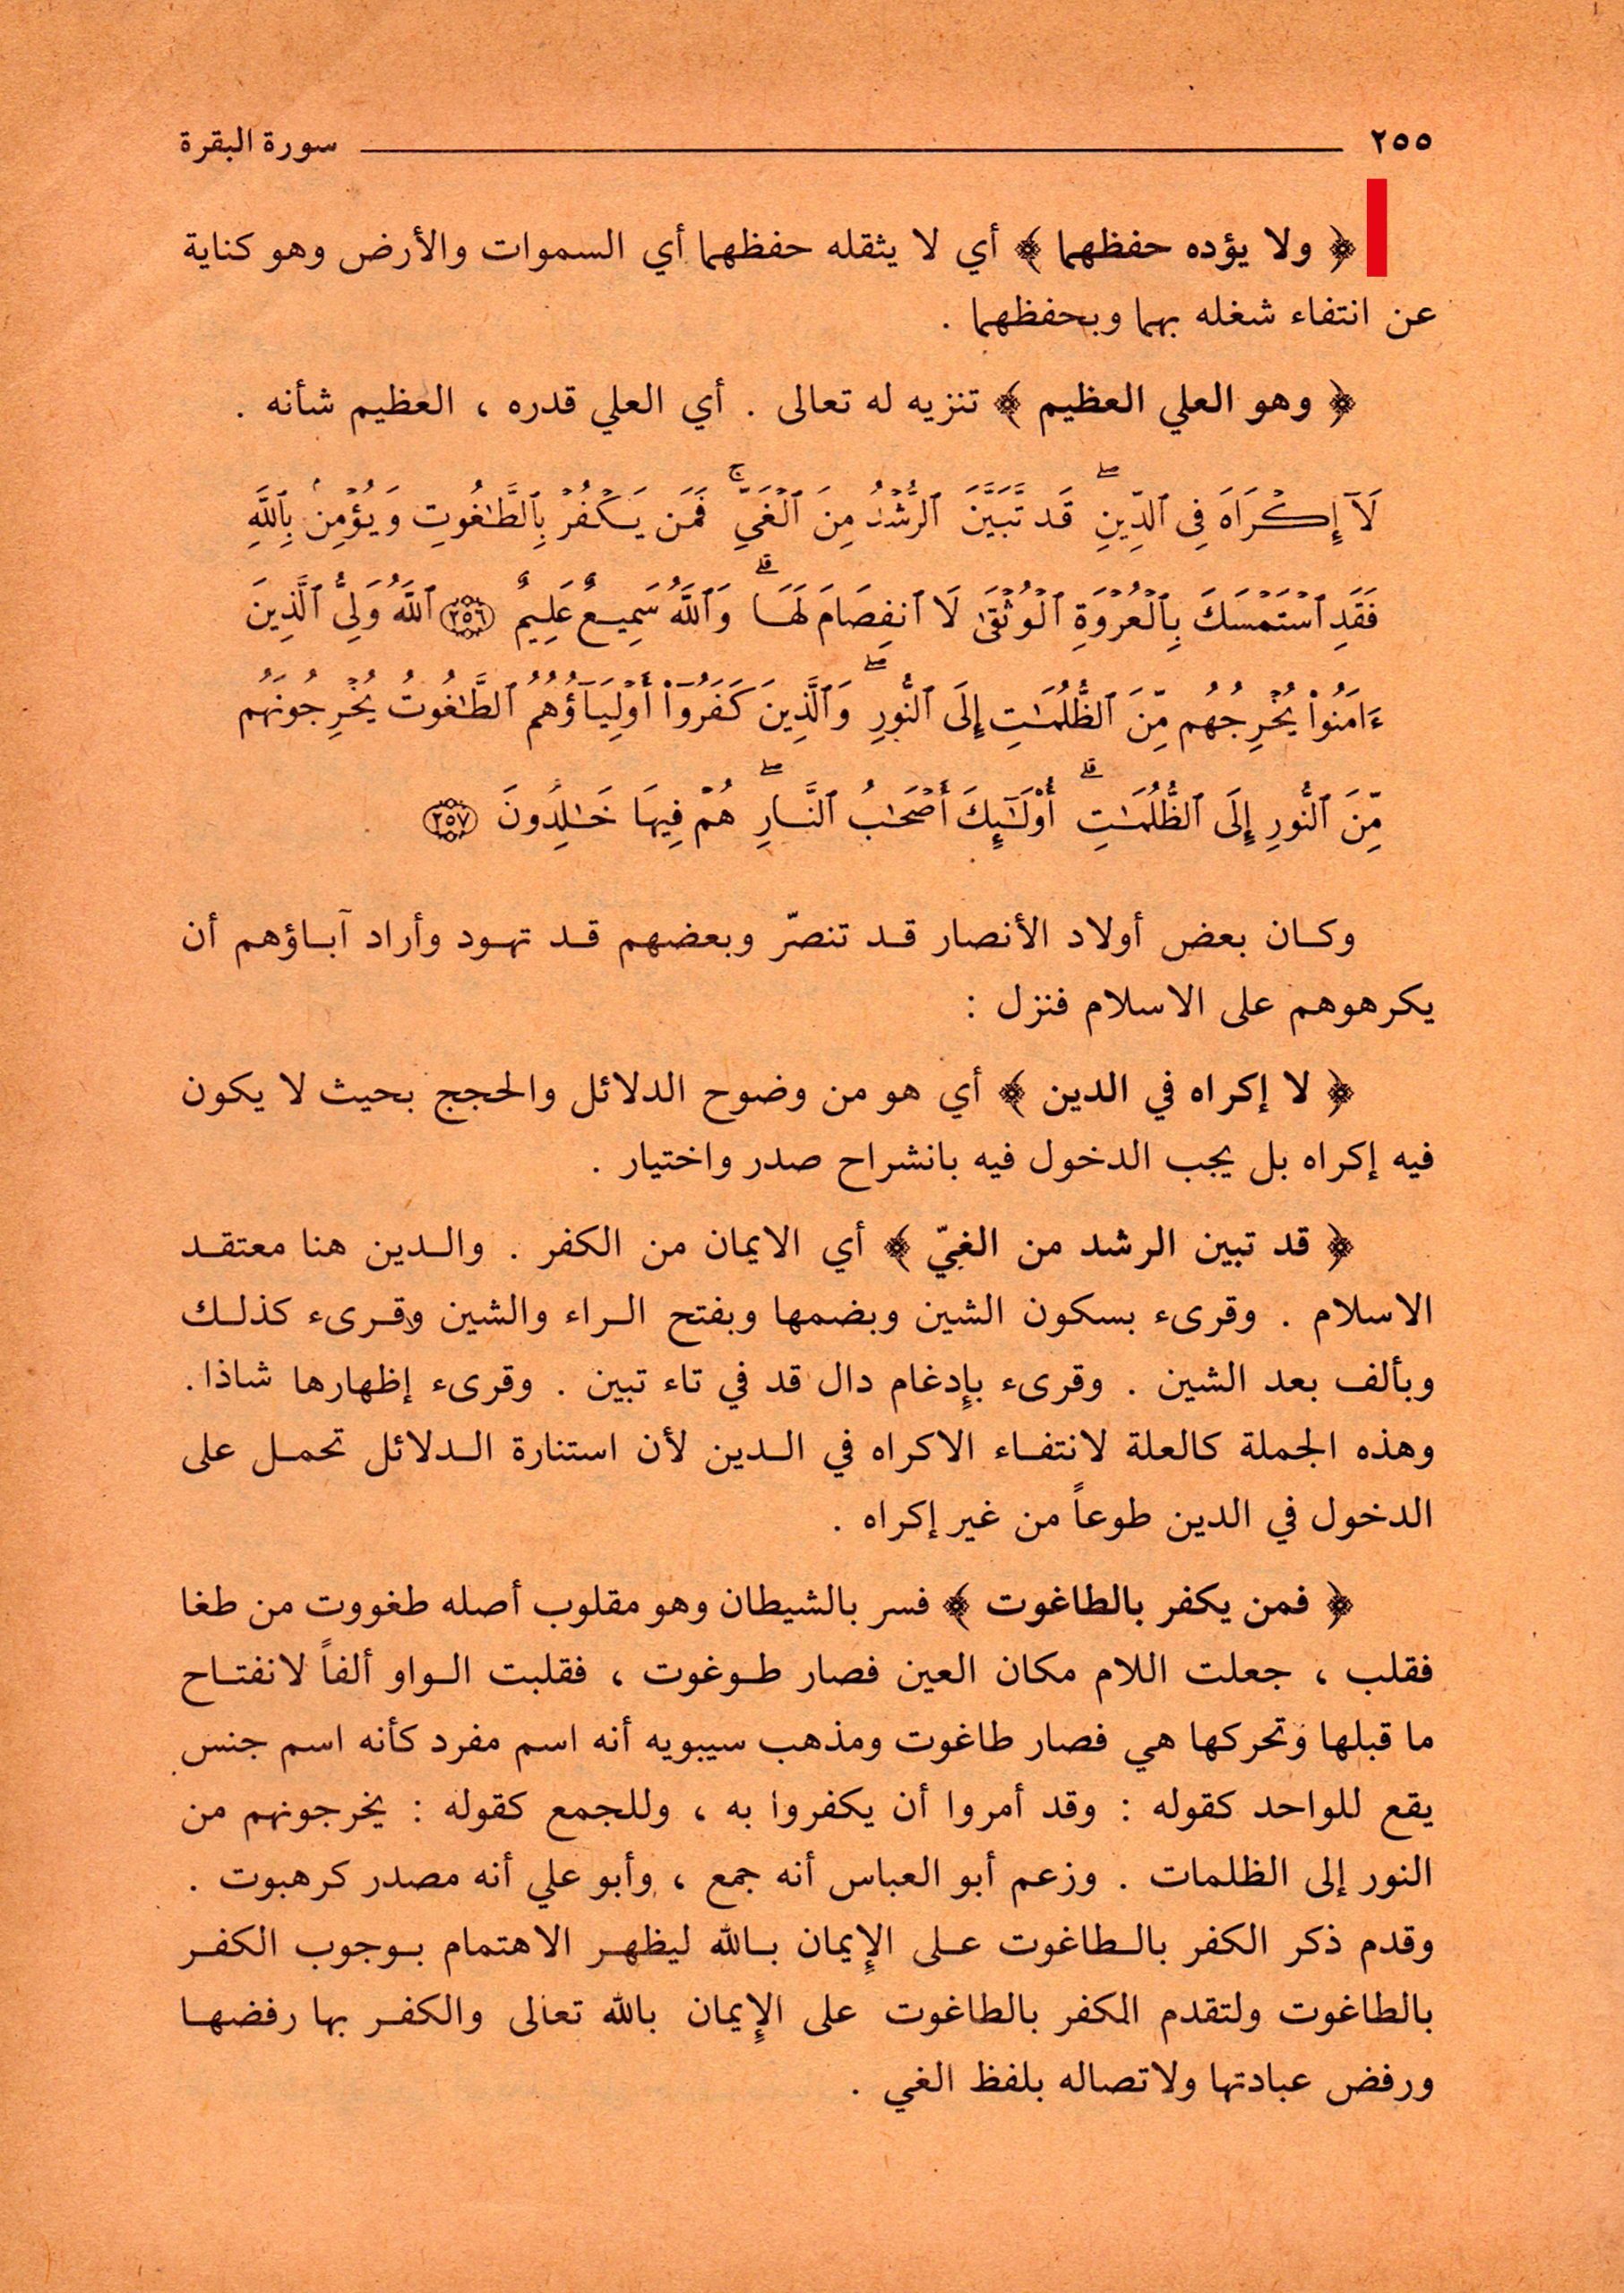 ٢٥٥ سورة البقرة
﴿ ولا يؤده حفظهما ﴾ أي لا يثقله حفظهما أي السموات والأرض وهو كناية
عن انتفاء شغله بهما وبحفظهما .
﴿ وهو العلي العظيم ﴾ تنزيه له تعالى . أي العلي قدره ، العظيم شأنه .
لَآ إِكْرَاهَ فِى ٱلدِّينِ ۖ قَد تَّبَيَّنَ ٱلرُّشْدُ مِنَ ٱلْغَىِّ ۚ فَمَن يَكْفُرْ بِٱلطَّٰغُوتِ وَيُؤْمِنۢ بِٱللَّهِ
فَقَدِ ٱسْتَمْسَكَ بِٱلْعُرْوَةِ ٱلْوُثْقَىٰ لَا ٱنفِصَامَ لَهَا ۗ وَٱللَّهُ سَمِيعٌ عَلِيمٌ ﴿٢٥٦﴾ ٱللَّهُ وَلِىُّ ٱلَّذِينَ
ءَامَنُوا۟ يُخْرِجُهُم مِّنَ ٱلظُّلُمَٰتِ إِلَى ٱلنُّورِ ۖ وَٱلَّذِينَ كَفَرُوٓا۟ أَوْلِيَآؤُهُمُ ٱلطَّٰغُوتُ يُخْرِجُونَهُم
مِّنَ ٱلنُّورِ إِلَى ٱلظُّلُمَٰتِ ۗ أُو۟لَٰٓئِكَ أَصْحَٰبُ ٱلنَّارِ ۖ هُمْ فِيهَا خَٰلِدُونَ ﴿٢٥٧﴾
وكان بعض أولاد الأنصار قد تنصّر وبعضهم قد تهود وأراد آباؤهم أن
يكرهوهم على الاسلام فنزل :
﴿ لا إكراه في الدين ﴾ أي هو من وضوح الدلائل والحجج بحيث لا يكون
فيه إكراه بل يجب الدخول فيه بانشراح صدر واختيار .
﴿ قد تبين الرشد من الغيّ ﴾ أي الايمان من الكفر . والدين هنا معتقد
الاسلام . وقرىء بسكون الشين وبضمها وبفتح الراء والشين وقرىء كذلك
وبألف بعد الشين . وقرىء بإدغام دال قد في تاء تبين . وقرىء إظهارها شاذا .
وهذه الجملة كالعلة لانتفاء الاكراه في الدين لأن استنارة الدلائل تحمل على
الدخول في الدين طوعاً من غير إكراه .
﴿ فمن يكفر بالطاغوت ﴾ فسر بالشيطان وهو مقلوب أصله طغووت من طغا
فقلب ، جعلت اللام مكان العين فصار طوغوت ، فقلبت الواو ألفاً لانفتاح
ما قبلها وتحركها هي فصار طاغوت ومذهب سيبويه أنه اسم مفرد كأنه اسم جنس
يقع للواحد كقوله : وقد أمروا أن يكفروا به ، وللجمع كقوله : يخرجونهم من
النور إلى الظلمات . وزعم أبو العباس أنه جمع ، وأبو علي أنه مصدر كرهبوت .
وقدم ذكر الكفر بالطاغوت على الإيمان بالله ليظهر الاهتمام بوجوب الكفر
بالطاغوت ولتقدم المكفر بالطاغوت على الإيمان بالله تعالى والكفر بها رفضها
ورفض عبادتها ولاتصاله بلفظ الغي .